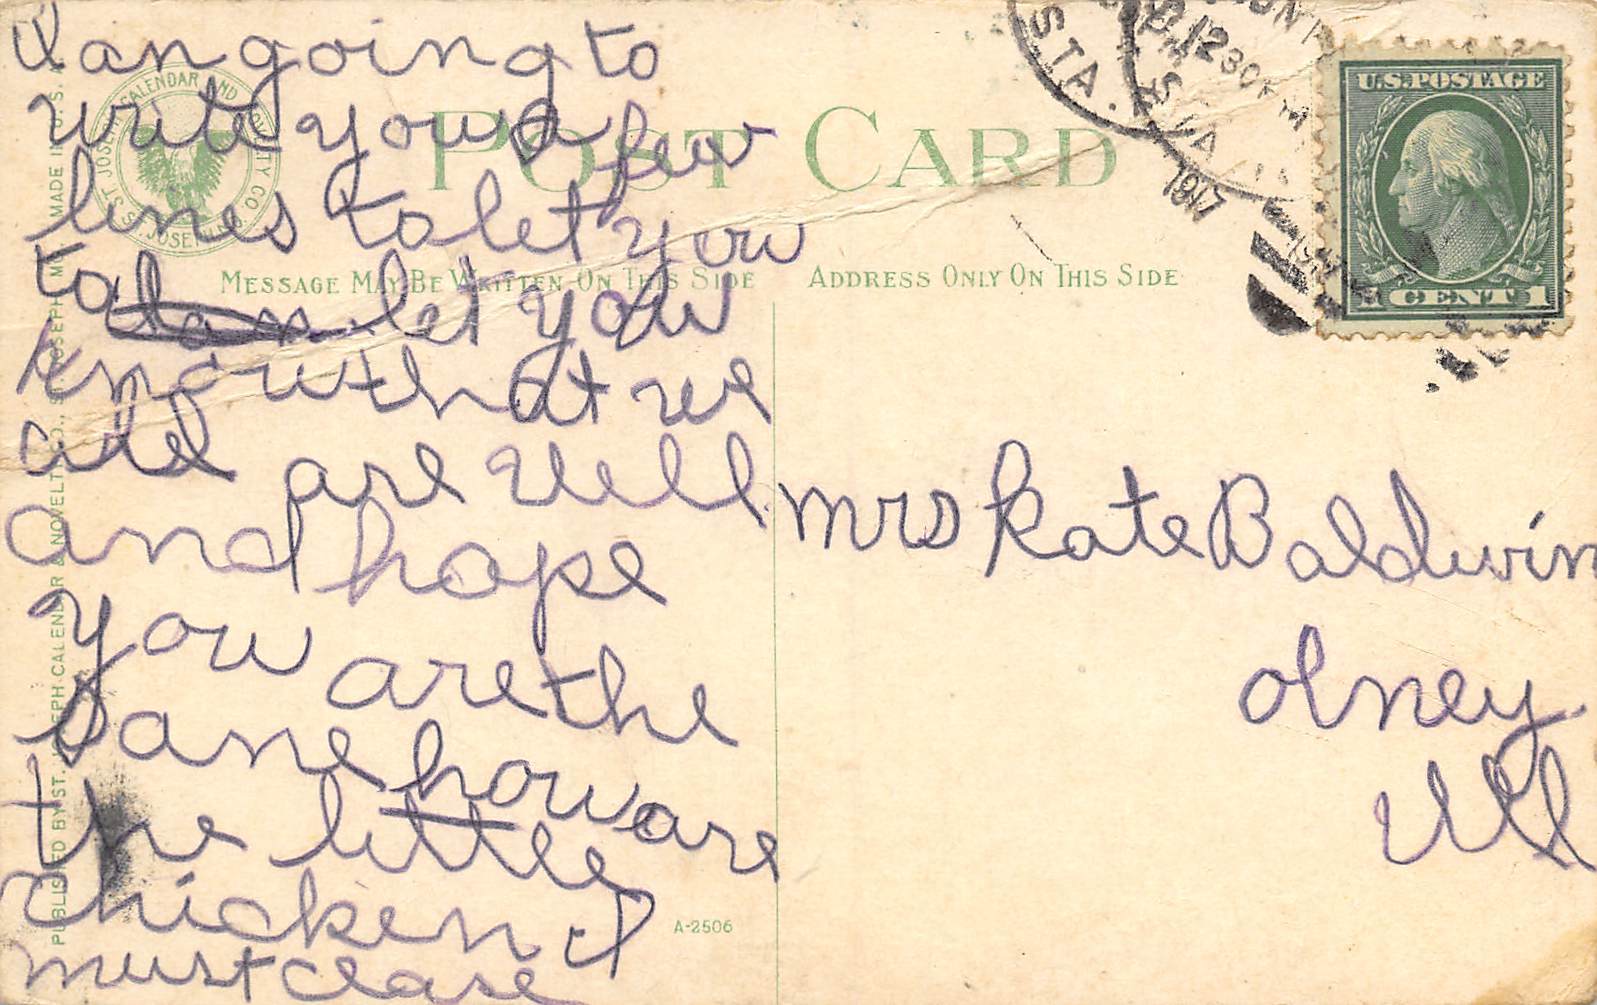 I an going to
write you a few
lines to let you
to let you
know that we
all are well
and hope
you are the
sane how are
the little
chicken I
must close
POST CARD
MESSAGE MAY BE WRITTEN ON THIS SIDE
ADDRESS ONLY ON THIS SIDE
U.S. POSTAGE
1 CENT 1
STA.
12 30 PM
STA
1917
Mrs Kate Baldwin
Olney
Ill
A-2506
PUBLISHED BY ST. JOSEPH CALENDAR & NOVELTY CO., ST. JOSEPH, MO. MADE IN U.S.A.
ST. JOSEPH CALENDAR AND NOVELTY CO.
ST. JOSEPH